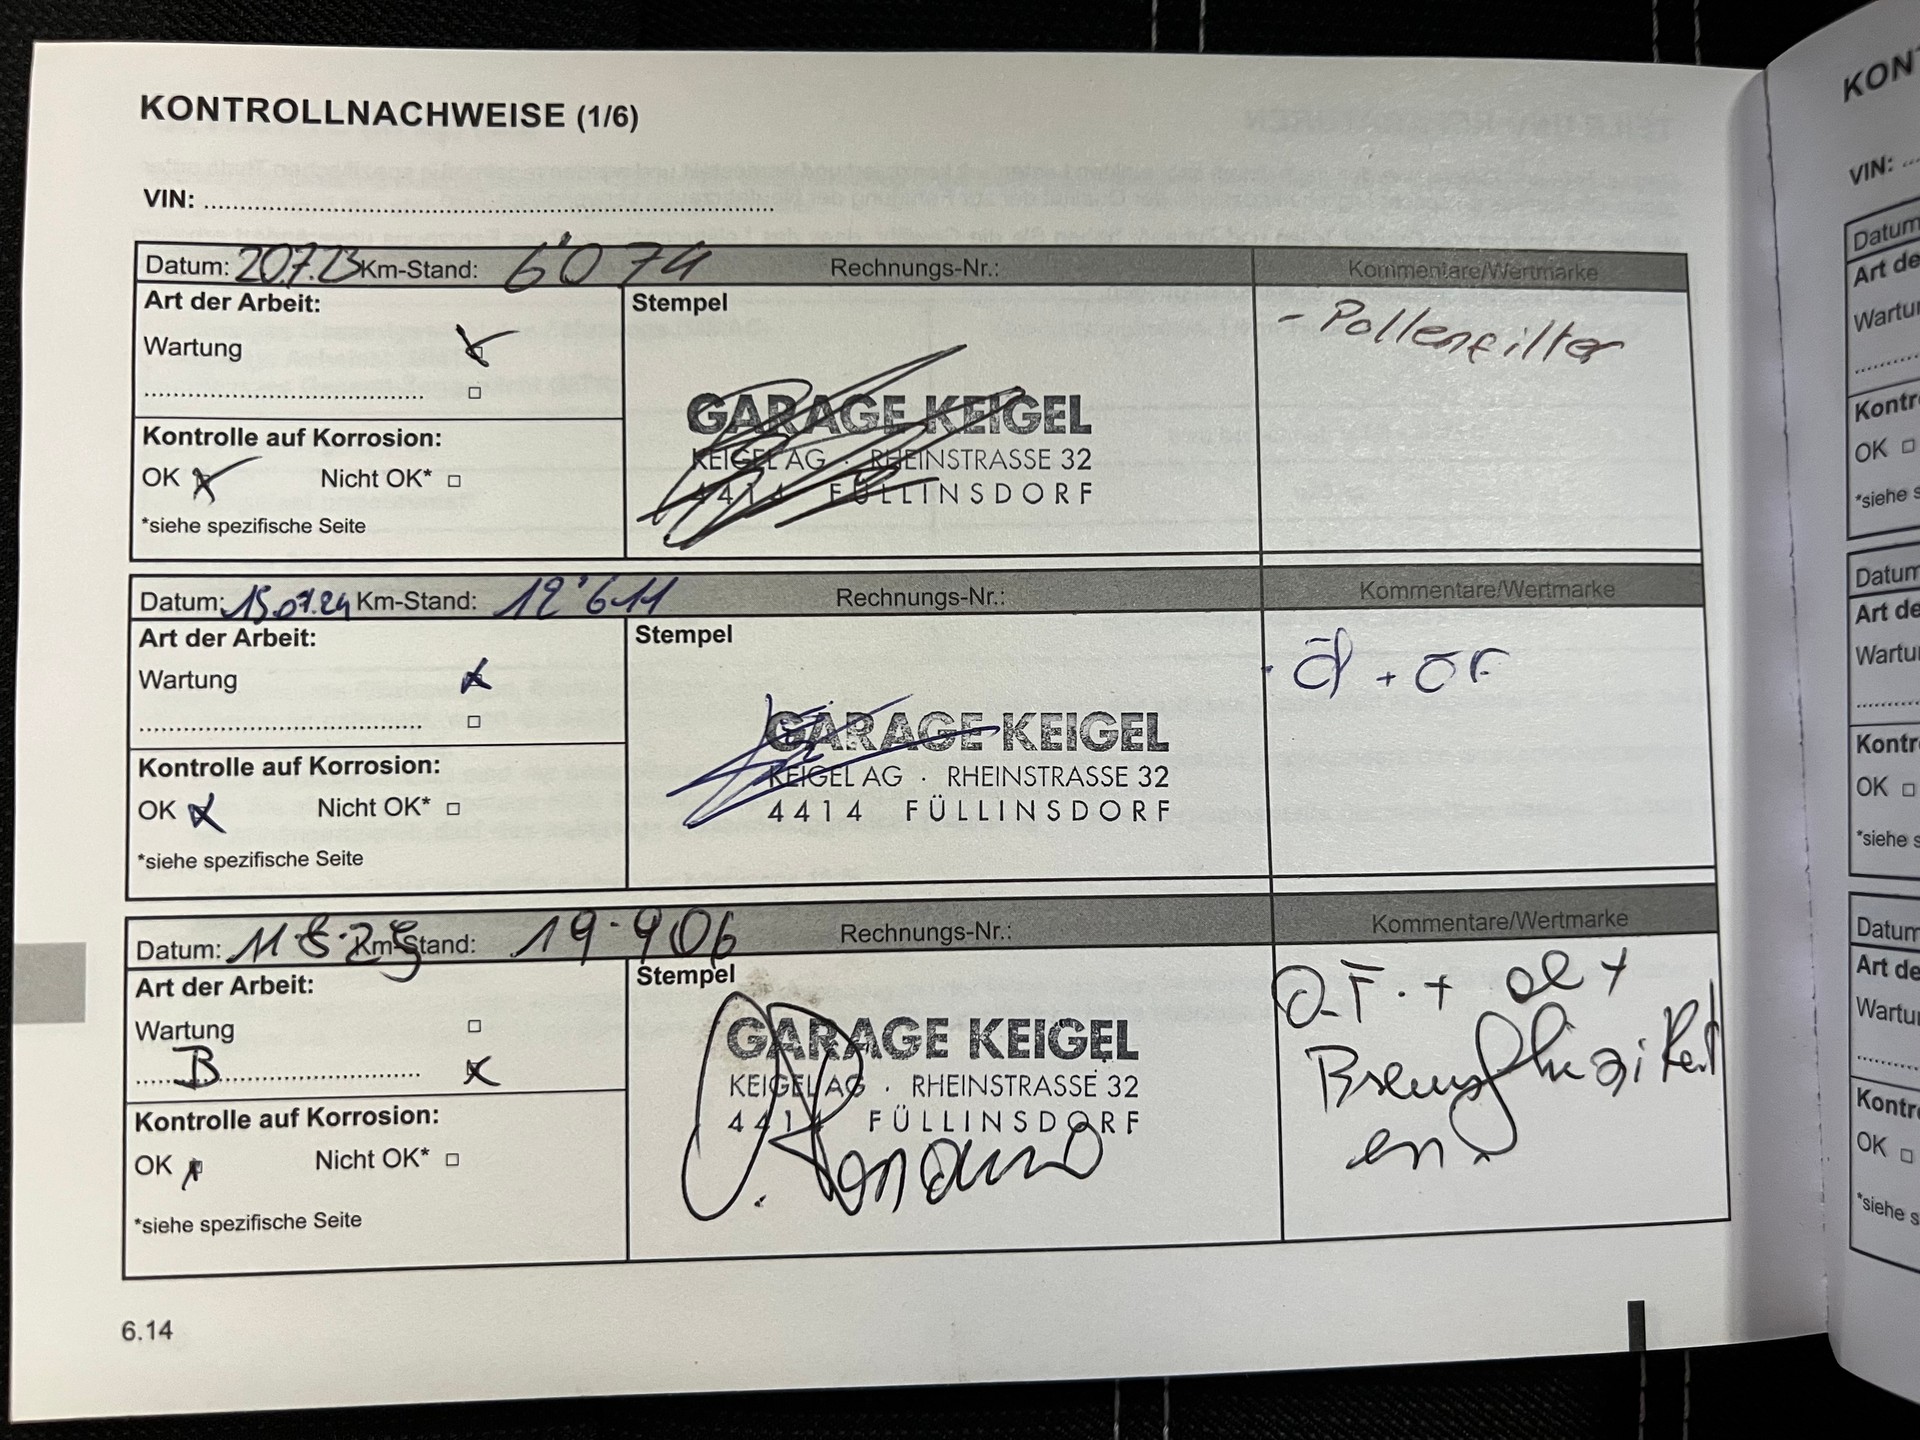 KONTROLLNACHWEISE (1/6)
VIN: ........................................................................
Datum: 20.7.23 Km-Stand: 6'074 Rechnungs-Nr.: Kommentare/Wertmarke
Art der Arbeit: Stempel
- Pollenfilter
Wartung
GARAGE KEIGEL
Kontrolle auf Korrosion:
KEIGEL AG · RHEINSTRASSE 32
OK Nicht OK*
4414 FÜLLINSDORF
*siehe spezifische Seite
Datum: 15.07.24 Km-Stand: 12'611 Rechnungs-Nr.: Kommentare/Wertmarke
Art der Arbeit: Stempel
Wartung
GARAGE KEIGEL
Kontrolle auf Korrosion:
KEIGEL AG · RHEINSTRASSE 32
OK Nicht OK*
4414 FÜLLINSDORF
*siehe spezifische Seite
Datum: Km-Stand: 19.906 Rechnungs-Nr.: Kommentare/Wertmarke
Art der Arbeit: Stempel
Wartung
GARAGE KEIGEL
B
KEIGEL AG · RHEINSTRASSE 32
Kontrolle auf Korrosion:
4414 FÜLLINSDORF
OK Nicht OK*
*siehe spezifische Seite
6.14
KONT
VIN: ...
Datum
Art de
Wartu
Kontr
OK
*siehe s
Datum
Art de
Wartu
Kontr
OK
*siehe s
Datum
Art de
Wartu
Kontr
OK
*siehe s